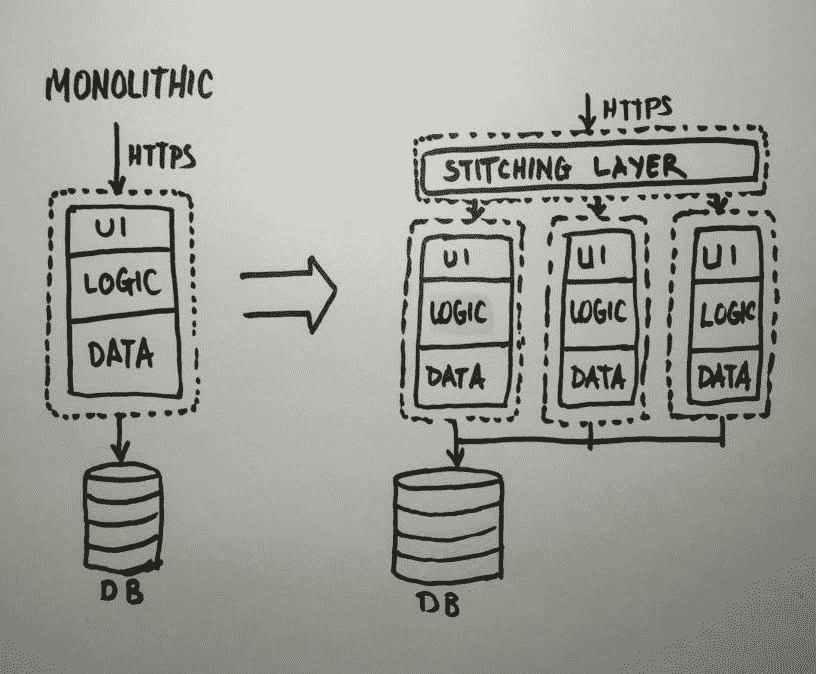 MONOLITHIC
HTTPS
UI
LOGIC
DATA
DB
HTTPS
STITCHING LAYER
UI
LOGIC
DATA
UI
LOGIC
DATA
UI
LOGIC
DATA
DB